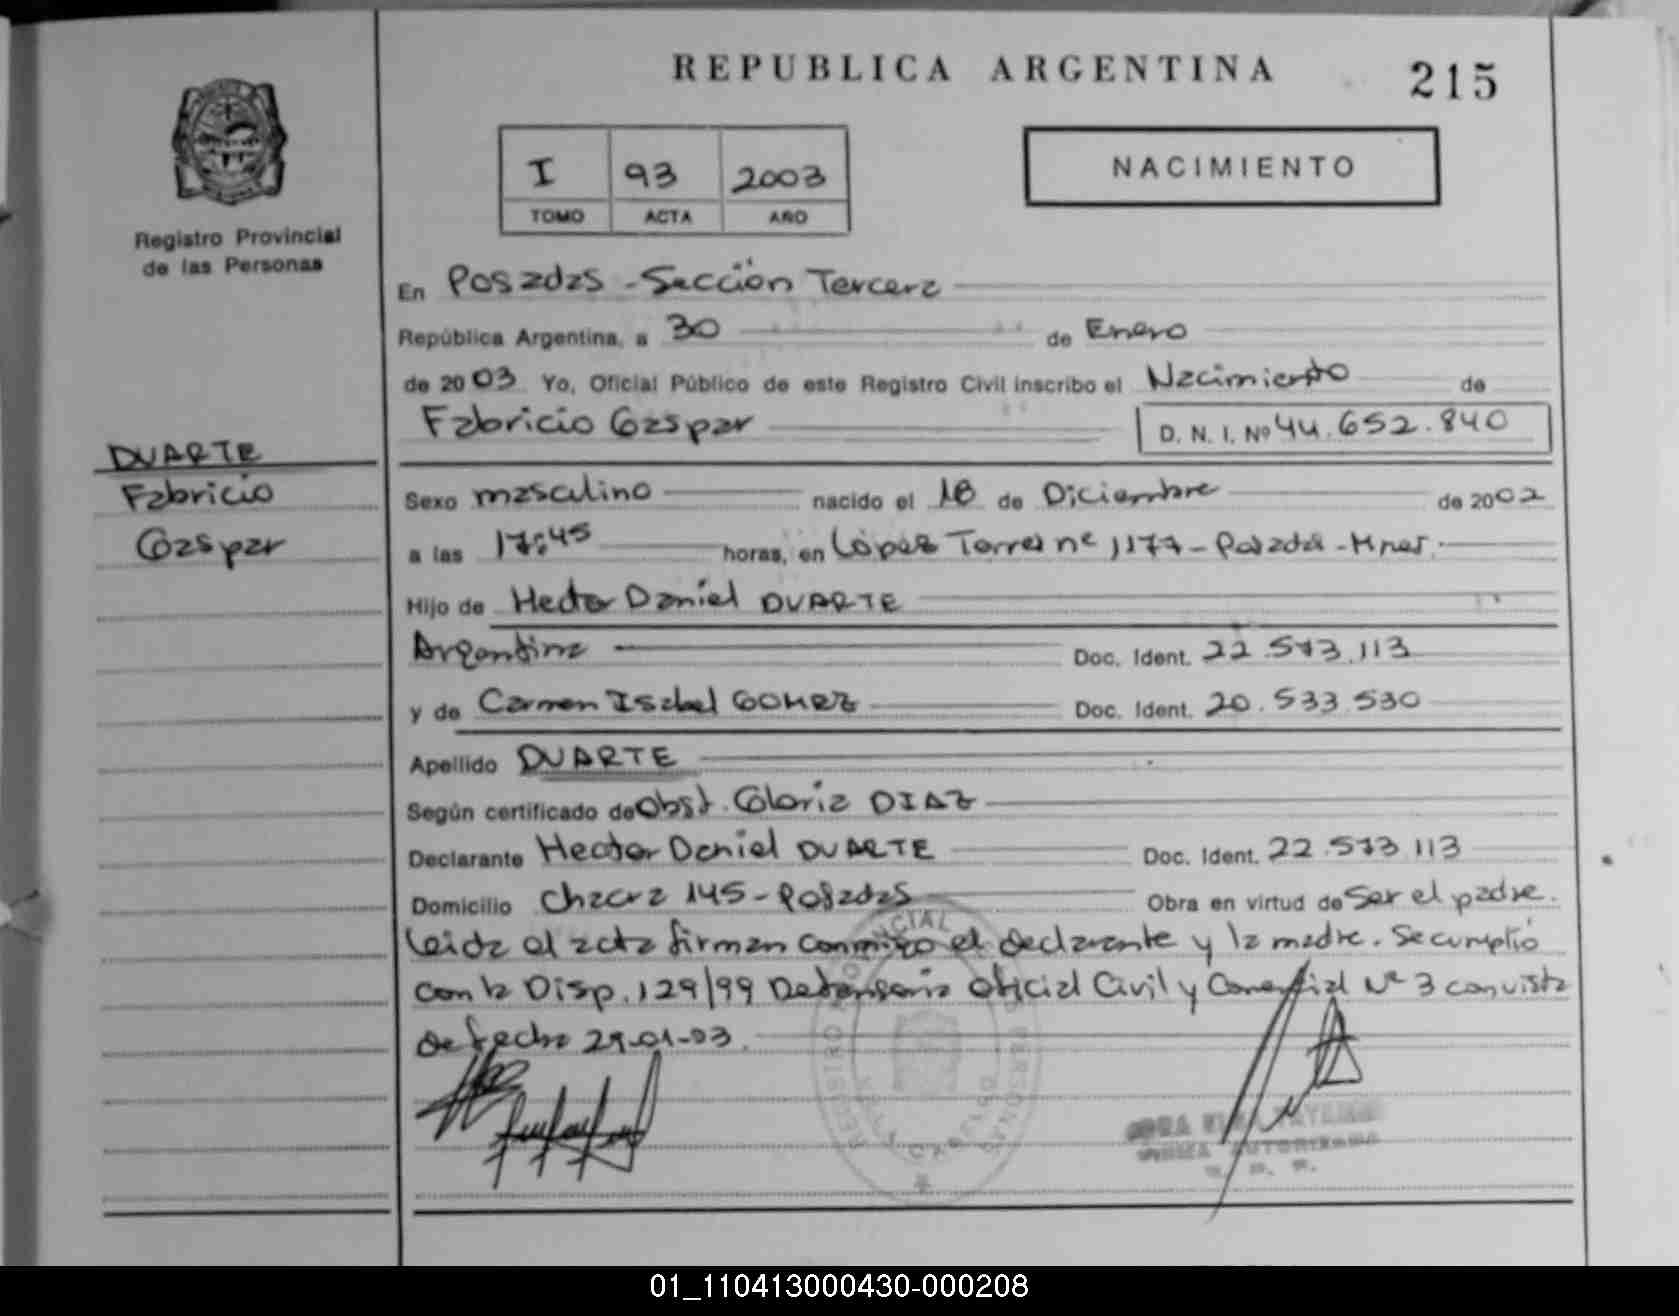 REPUBLICA ARGENTINA
215
I 93 2003
TOMO ACTA AÑO
NACIMIENTO
Registro Provincial
de las Personas
En Posadas - Sección Tercera
República Argentina, a 30 de Enero
de 2003 Yo, Oficial Público de este Registro Civil inscribo el Nacimiento de
Fabricio Gaspar D. N. I. Nº 44.652.840
DUARTE
Fabricio
Gaspar
Sexo masculino nacido el 18 de Diciembre de 2002
a las 17:45 horas, en López Torres nº 1177 - Posadas - Mnes.
Hijo de Hector Daniel DUARTE
Argentina Doc. Ident. 22.573.113
y de Carmen Isabel GOMEZ Doc. Ident. 20.533.530
Apellido DUARTE
Según certificado de Obst. Gloria DIAZ
Declarante Hector Daniel DUARTE Doc. Ident. 22.573.113
Domicilio Chacra 145 - Posadas Obra en virtud de Ser el padre.
Leida el acta firman conmigo el declarante y la madre. Se cumplió
con la Disp. 129/99 Defensoria Oficial Civil y Comercial Nº 3 con vista
de fecha 29-01-03.
FIRMA AUTORIZADA
01_110413000430-000208